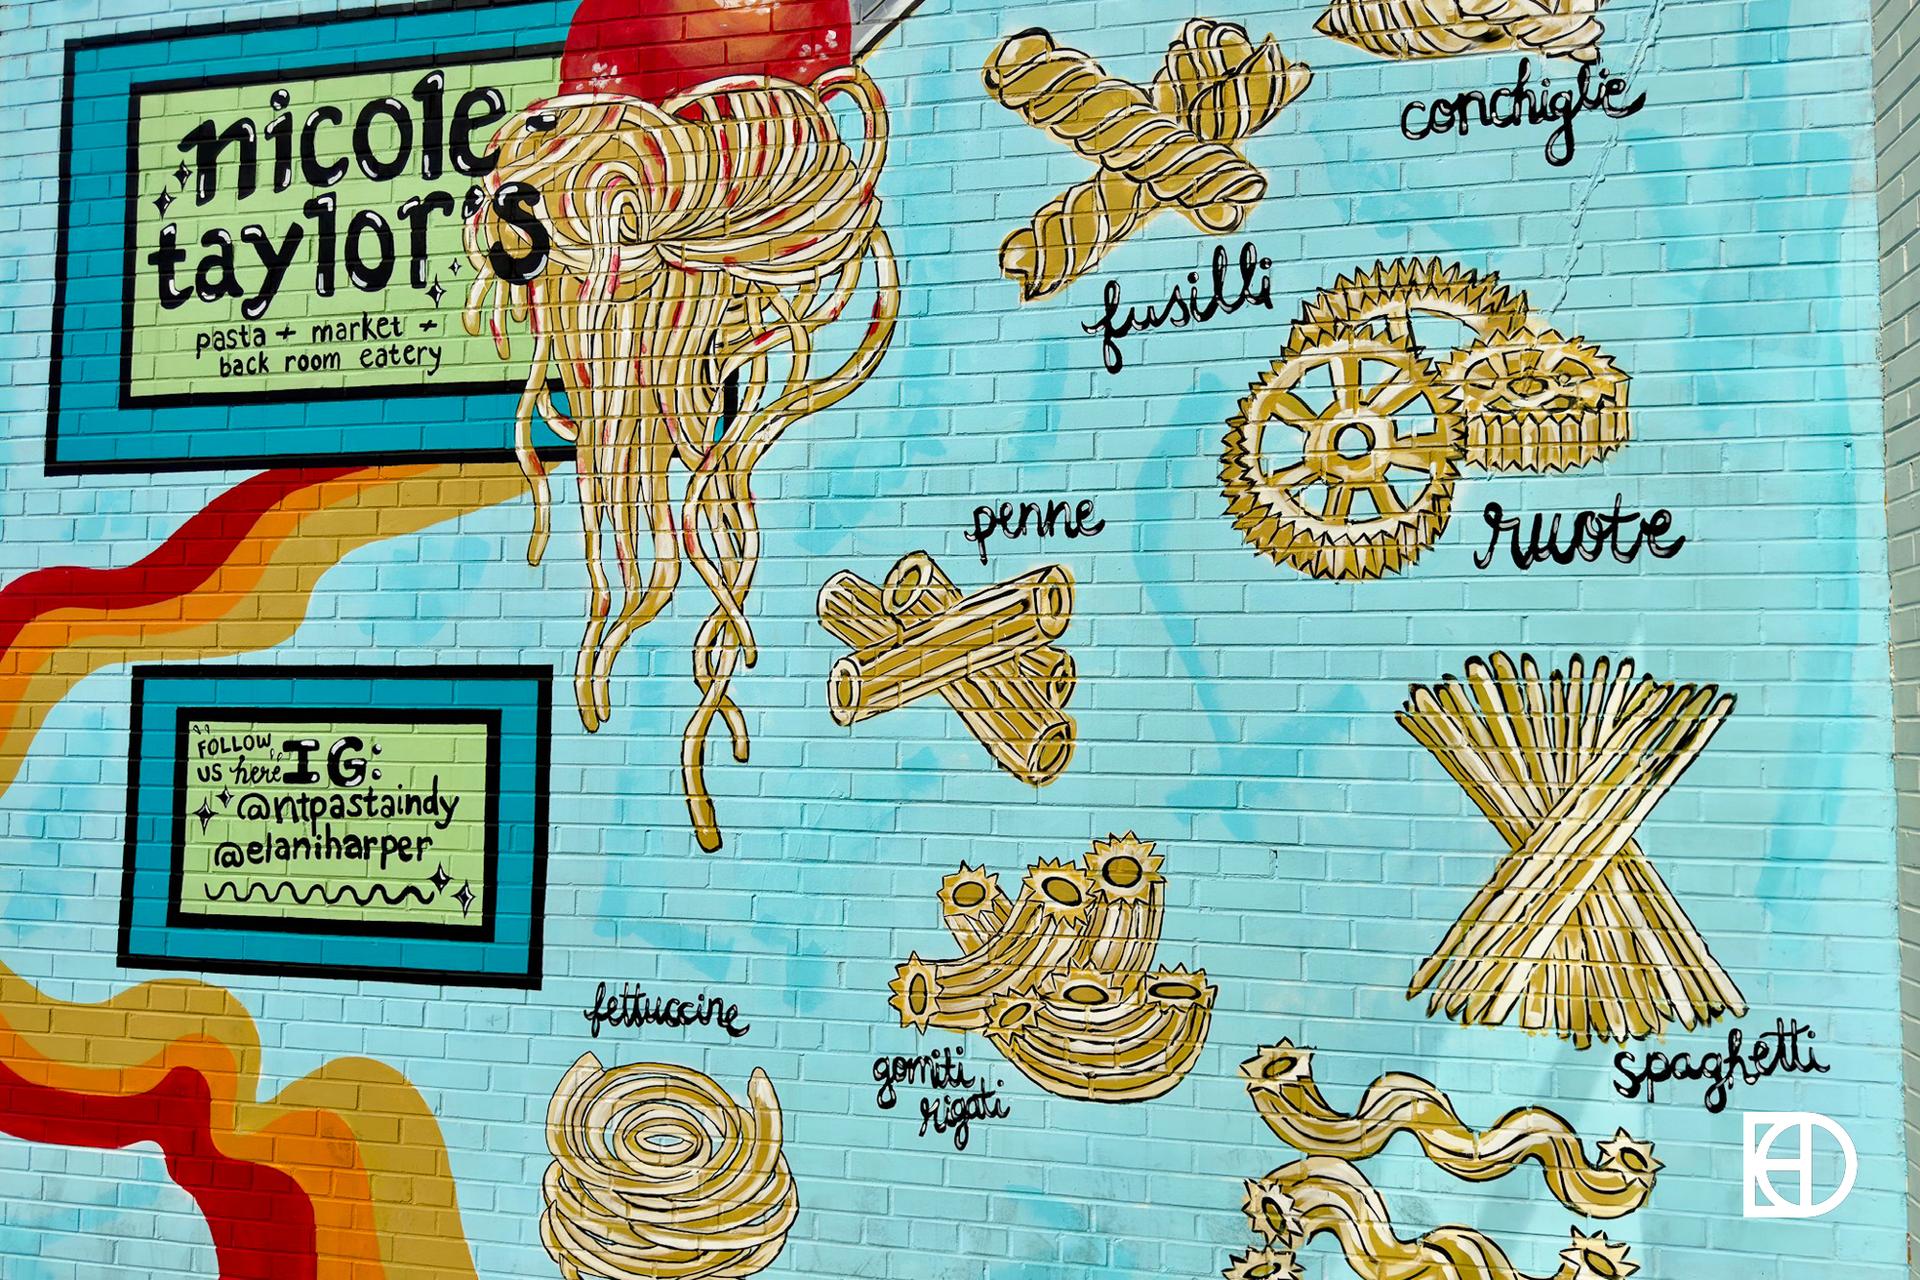 nicole
taylor's
pasta + market +
back room eatery
conchiglie
fusilli
ruote
penne
FOLLOW
US here IG:
@ntpastaindy
@elaniharper
fettuccine
gomiti
rigati
spaghetti